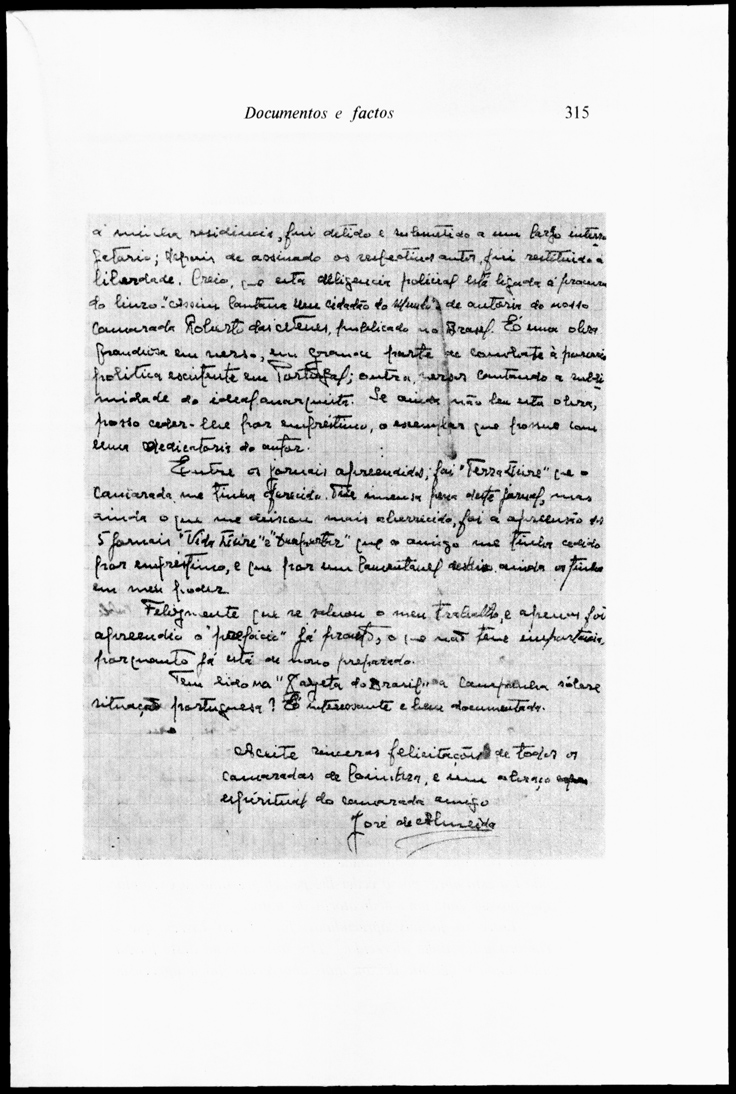 Documentos e factos 315
à minha residencia, fui detido e submetido a um largo interro
gatario; depois de assinado os respectivos autos, fui restituido á
liberdade. Creio, que esta diligencia policial está ligada á procura
do livro "Assim Cantava um cidadão do Mundo" de autoria do nosso
camarada Roberto das Neves, publicado no Brasil. É uma obra
grandiosa em verso, em grande parte de combate à
politica existente em Portugal; outra, versos cantando a subli
midade do ideal anarquista. Se ainda não leu esta obra,
posso ceder-lhe por emprestimo, o exemplar que possuo com
uma dedicatoria do autor.
Entre os jornais apreendidos, foi "Terra Livre" que o
camarada me tinha oferecido. Tive imensa pena deste jornal, mas
ainda o que me deixou mais aborrecido, foi a apreensão dos
5 jornais "Vida Livre" e que o amigo me tinha cedido
por emprestimo, e que por um lamentavel ainda os tinha
em meu poder.
Felizmente que se salvou o meu trabalho, e apenas foi
apreendido o "prefácio" já pronto, o que não teve importancia,
porquanto já está de novo preparado.
Tem lido na "Gazeta do Brasil" a Campanha sobre
situação portuguesa? É interessante e bem documentada.
Aceite sinceras felicitações de todos os
camaradas de Coimbra, e um abraço
espiritual do camarada amigo
José de Almeida